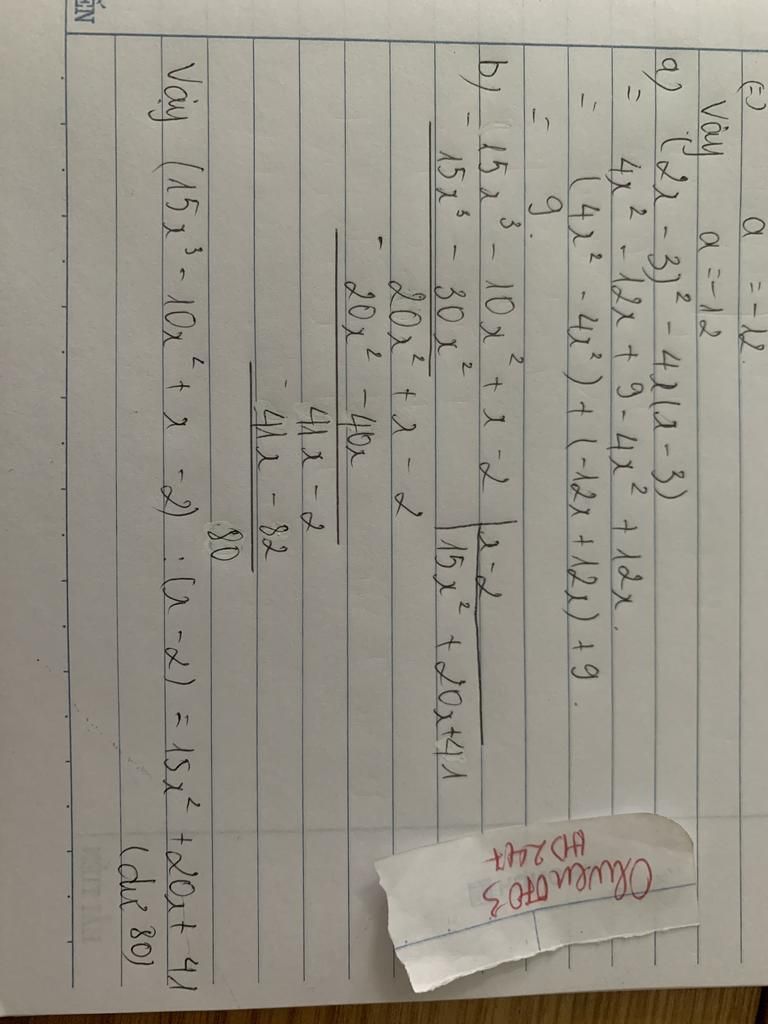 (=) a = -12.
Vậy a = -12
a) (2x - 3)² - 4x(x - 3)
= 4x² - 12x + 9 - 4x² + 12x.
= (4x² - 4x²) + (-12x + 12x) + 9.
= 9.
b) 15x³ - 10x² + x - 2 | x - 2
- 15x³ - 30x² | 15x² + 20x + 41
20x² + x - 2
- 20x² - 40x
41x - 2
- 41x - 82
80
Vậy (15x³ - 10x² + x - 2) : (x - 2) = 15x² + 20x + 41
(dư 80)
HD2047